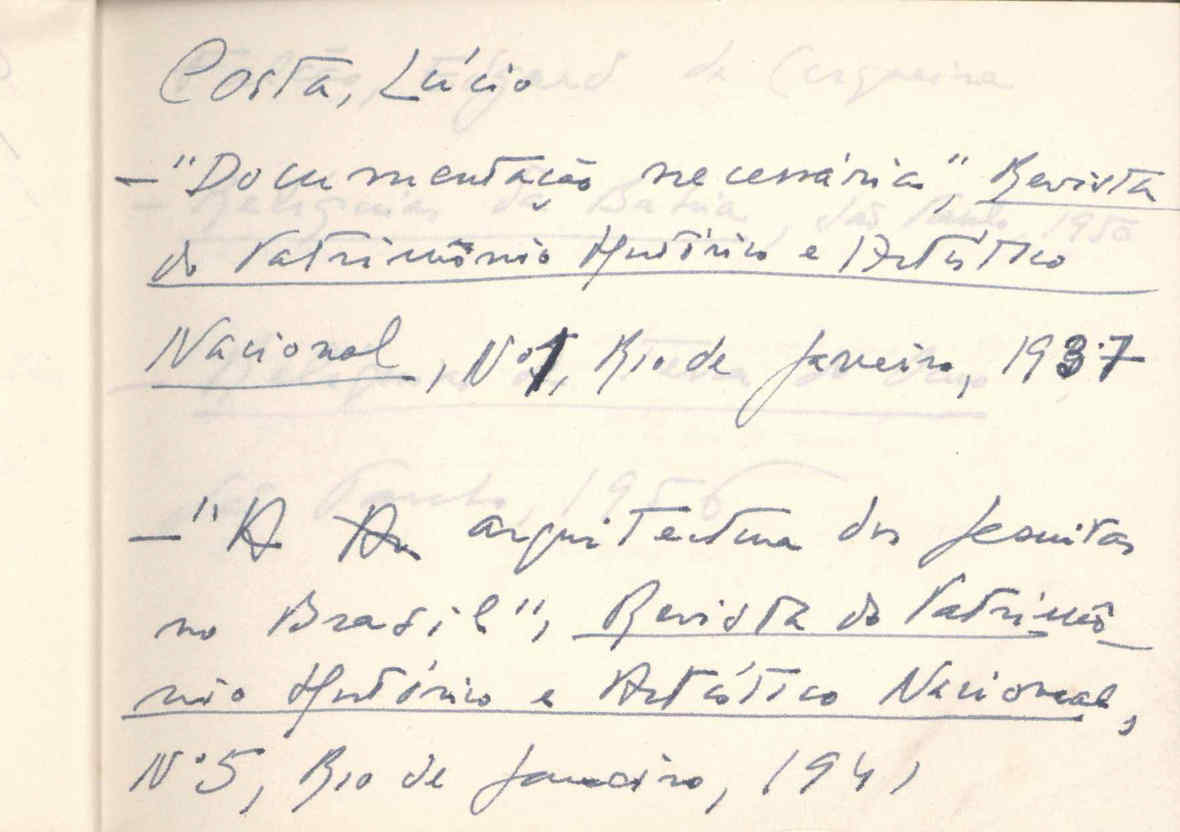 Costa, Lúcio
— "Documentação necessária", Revista
do Patrimônio Histórico e Artístico
Nacional, Nº1, Rio de Janeiro, 1937
— "A arquitectura dos Jesuitas
no Brasil", Revista do Patrimô-
nio Histórico e Artístico Nacional,
Nº5, Rio de Janeiro, 1941